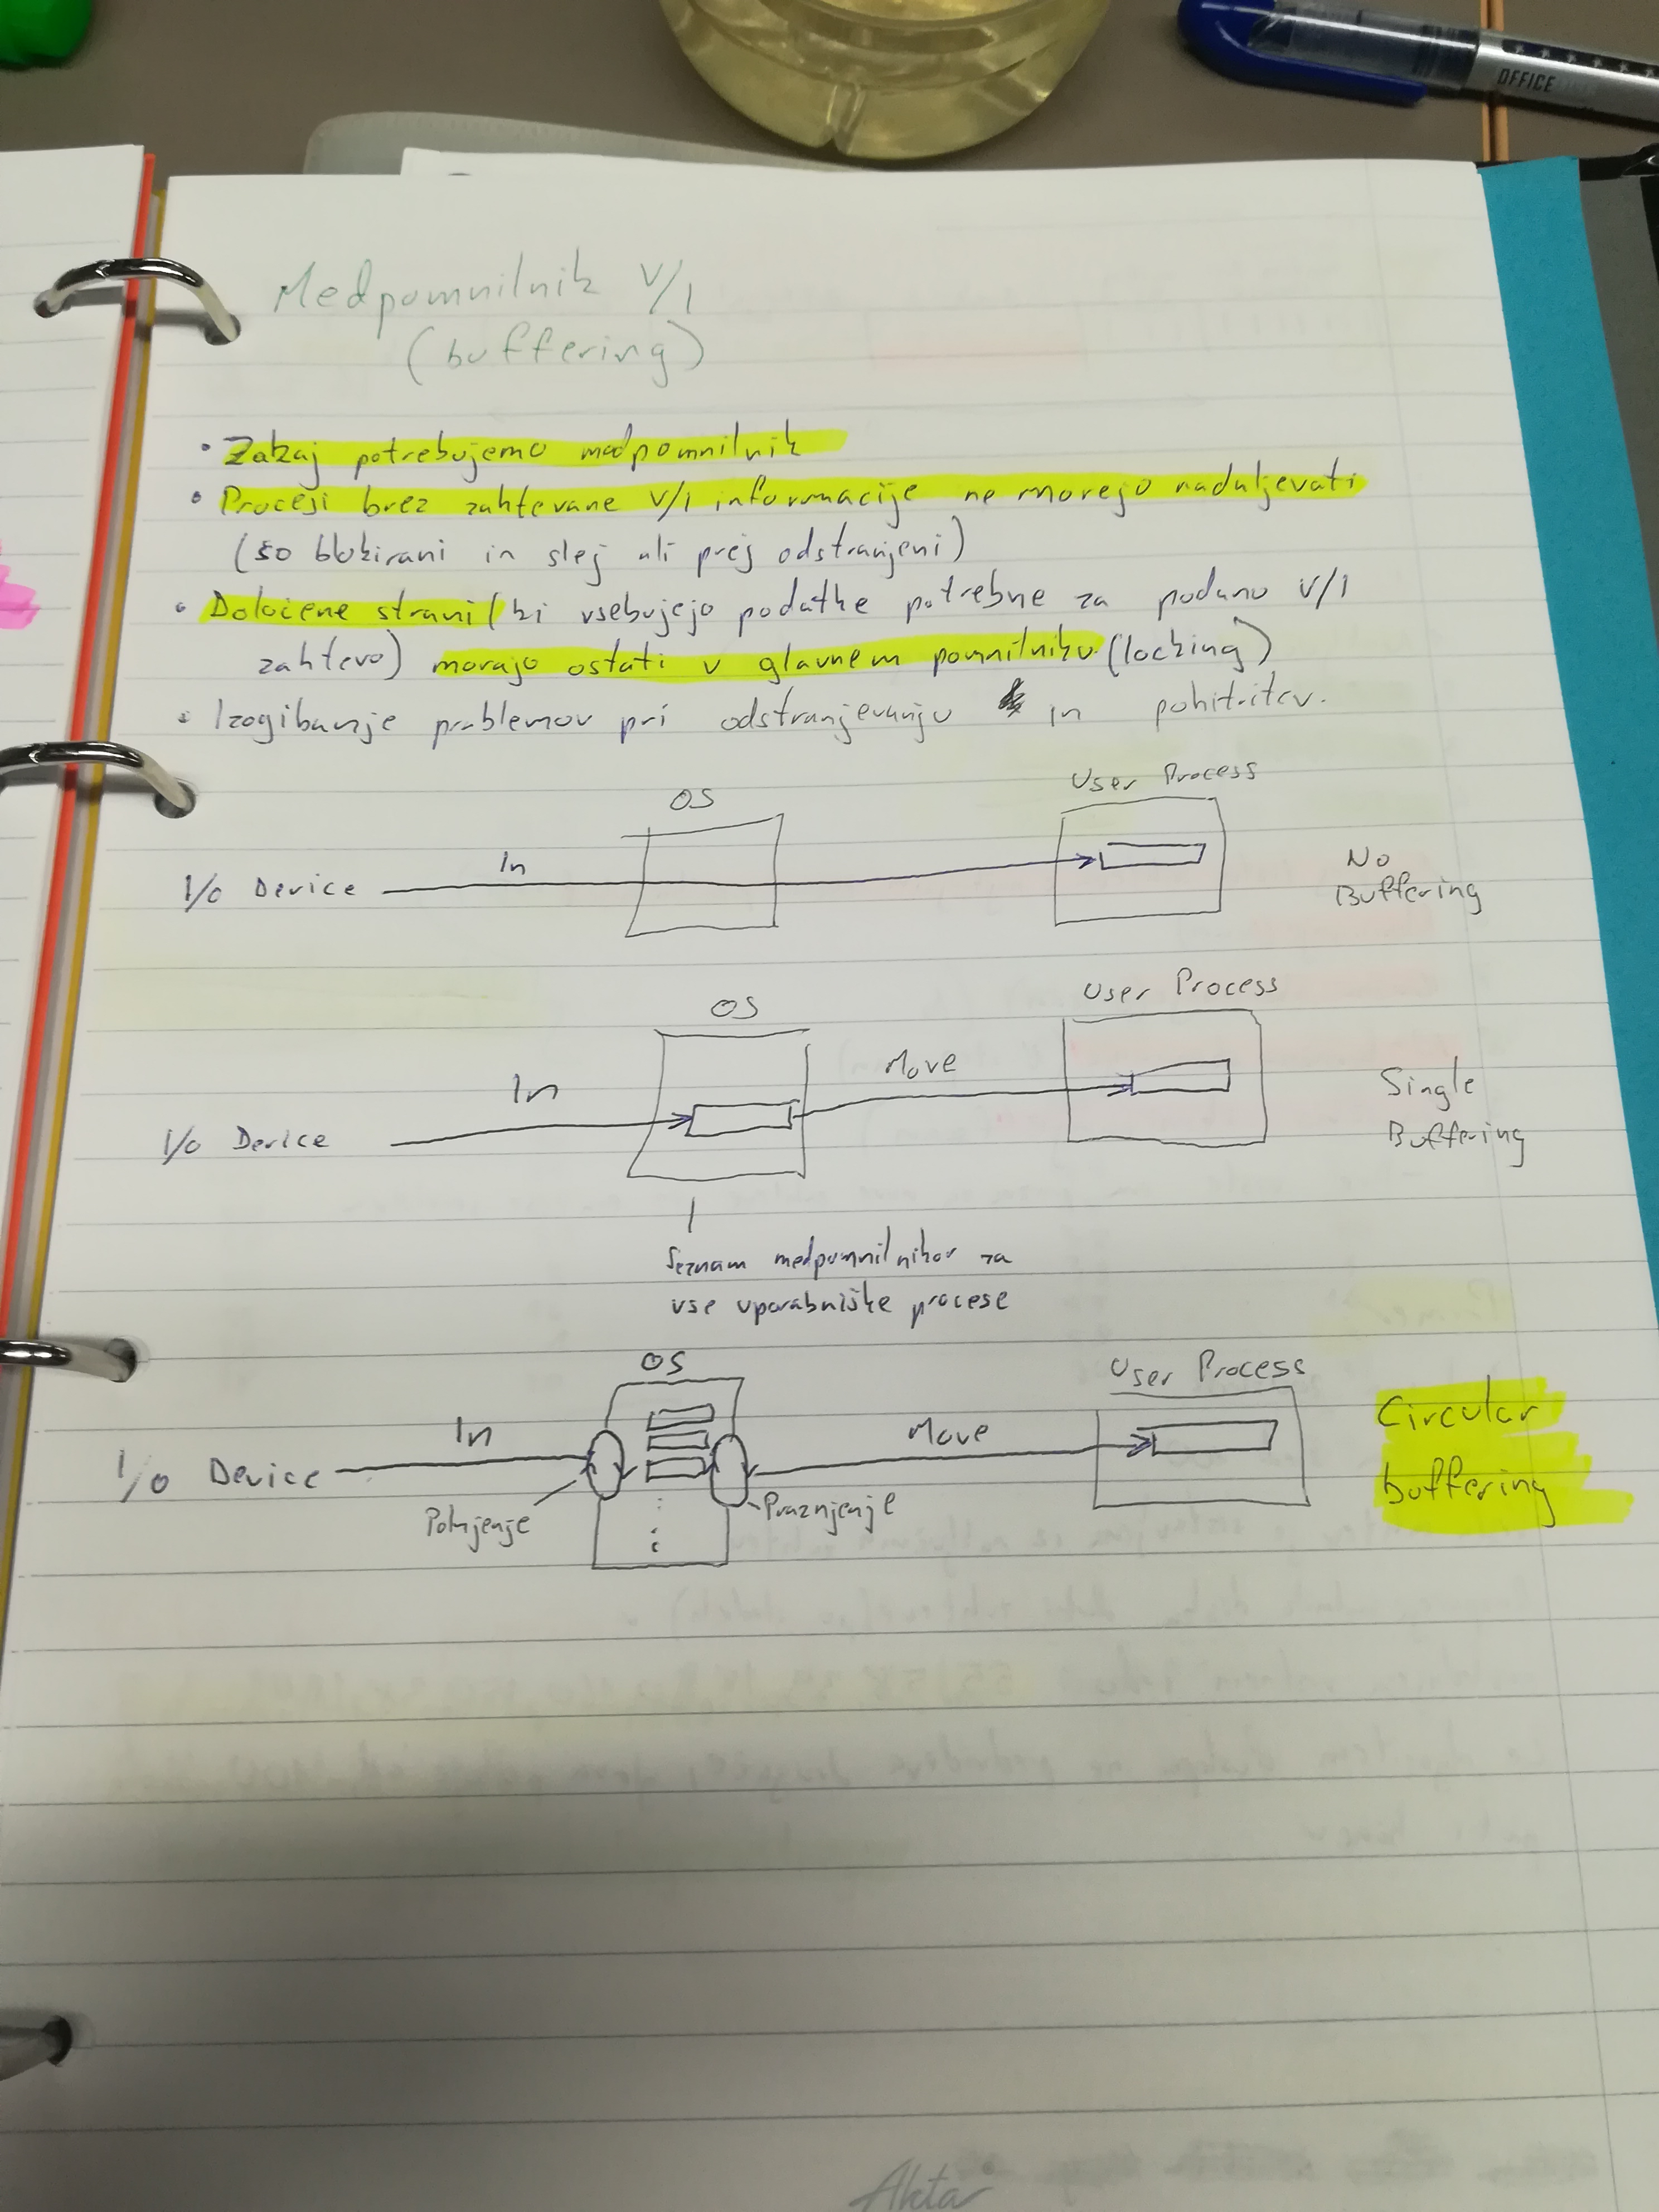 OFFICE
Medpomnilnik V/I
(buffering)
• Zakaj potrebujemo medpomnilnik
• Procesi brez zahtevane V/I informacije ne morejo nadaljevati
(so blokirani in slej ali prej odstranjeni)
• Določene strani (ki vsebujejo podatke potrebne za podano V/I
zahtevo) morajo ostati v glavnem pomnilniku (locking)
• Izogibanje problemov pri odstranjevanju in pohitritev.
User Process
OS
In
I/O Device
No
Buffering
User Process
OS
Move
In
I/O Device
Single
Buffering
Seznam medpomnilnikov za
vse uporabniške procese
OS
User Process
In
Move
I/O Device
Circular
buffering
Polnjenje
Praznjenje
Akta